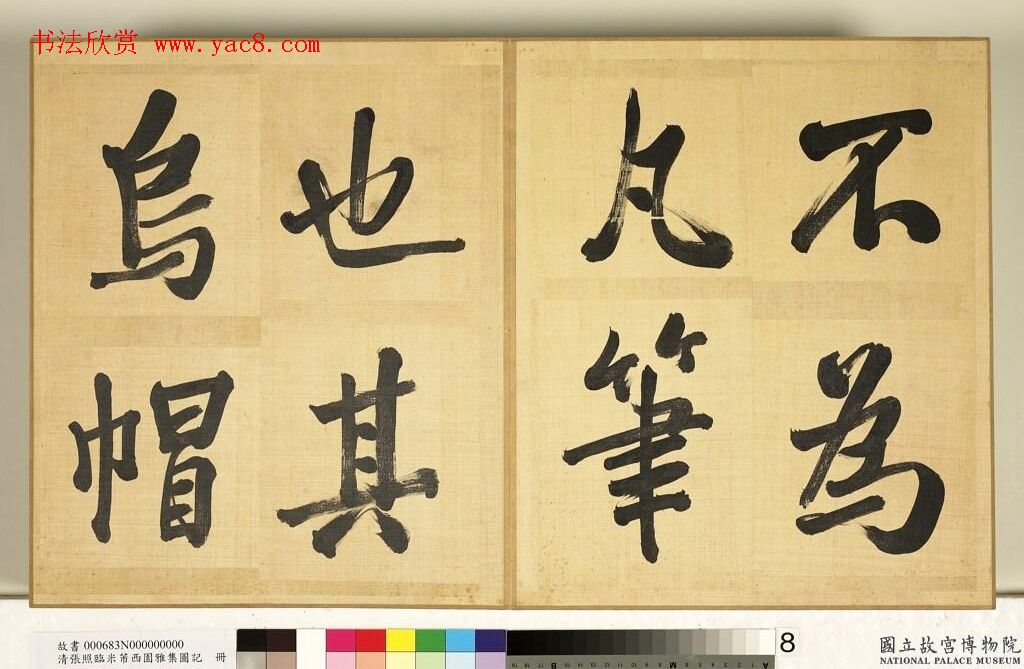 书法欣赏 www.yac8.com
不為
凡筆
也其
烏帽
故書 000683N000000000
清張照臨米芾西園雅集圖記 冊
8
國立故宮博物院
NATIONAL PALACE MUSEUM